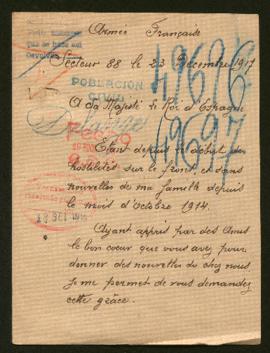 Armée Française
Secteur 88 le 23 Décembre 1917
49696
POBLACION
CIVIL
A Sa Majesté le Roi d'Espagne
49697
Etant depuis le début des
hostilités sur le front, et sans
nouvelles de ma famille depuis
le mois d'Octobre 1914.
Ayant appris par des Amis
le bon coeur que vous avez pour
donner des nouvelles de chez nous
Je me permet de vous demandez
cette grâce.